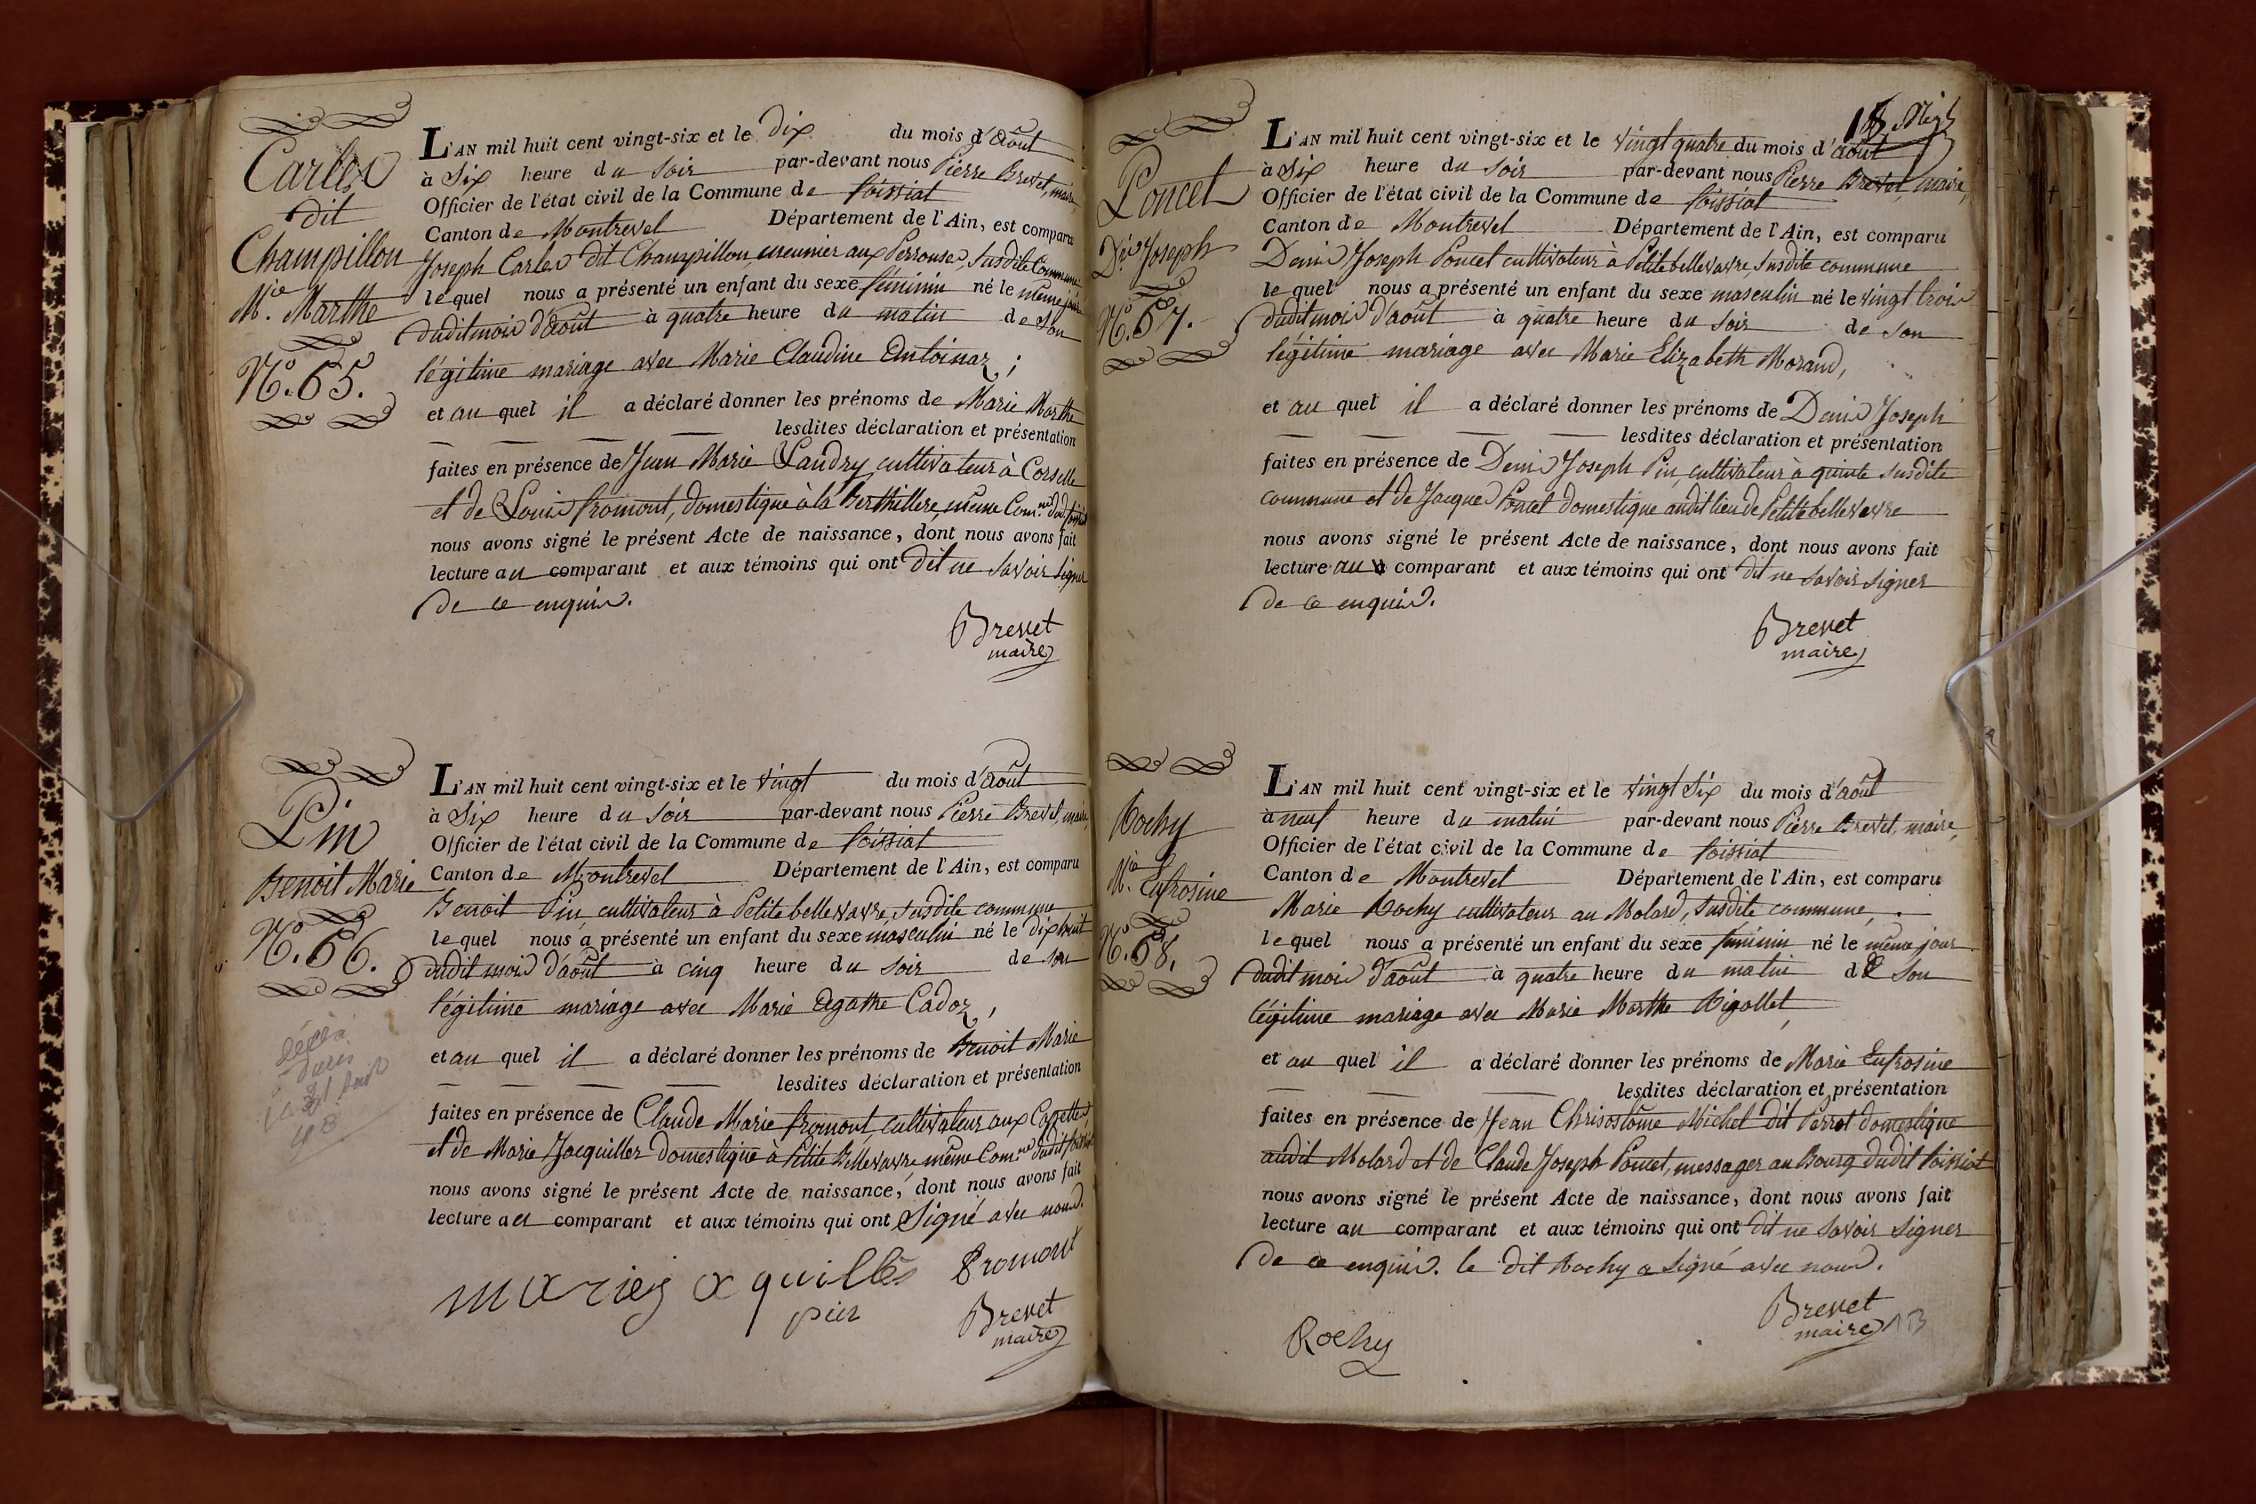 Carlos
dit
Champillon
Mie. Marthe
N°. 65.
L'AN mil huit cent vingt-six et le dix du mois d'août
à Six heure du soir par-devant nous Pierre Brevet, maire,
Officier de l'état civil de la Commune de foissiat
Canton de Montrevel Département de l'Ain, est comparu
Joseph Carlos dit Champillon meunier aux Perrouse, susdite Commune
lequel nous a présenté un enfant du sexe féminin né le même jour
dudit mois d'août à quatre heure du matin de son
légitime mariage avec Marie Claudine Antoinaz ;
et au quel il a déclaré donner les prénoms de Marie Marthe
lesdites déclaration et présentation
faites en présence de Jean Marie Landry, cultivateur à Corselle
et de Louis fromont, domestique à la Berthillere, même Com.ne dud. foissiat
nous avons signé le présent Acte de naissance, dont nous avons fait
lecture au comparant et aux témoins qui ont dit ne savoir signer
de ce enquis.
Brevet
maire
Pin
Benoit Marie
N°. 66.
décédé
L'AN mil huit cent vingt-six et le vingt du mois d'août
à Six heure du soir par-devant nous Pierre Brevet, maire,
Officier de l'état civil de la Commune de foissiat
Canton de Montrevel Département de l'Ain, est comparu
Benoit Pin, cultivateur à Petite bellevavre, susdite commune
lequel nous a présenté un enfant du sexe masculin né le dix huit
dudit mois d'août à cinq heure du soir de son
légitime mariage avec Marie Agathe Cadoz,
et au quel il a déclaré donner les prénoms de Benoit Marie
lesdites déclaration et présentation
faites en présence de Claude Marie fromont, cultivateur aux
et de Marie Jacquiller domestique à Petite Bellevavre même Com.ne dudit foissiat
nous avons signé le présent Acte de naissance, dont nous avons fait
lecture au comparant et aux témoins qui ont Signé avec nous.
fromont
pin
Brevet
maire
18
Poncet
Dis Joseph
N°. 67.
L'AN mil huit cent vingt-six et le vingt quatre du mois d'août
à Six heure du soir par-devant nous Pierre Brevet, maire,
Officier de l'état civil de la Commune de foissiat
Canton de Montrevel Département de l'Ain, est comparu
Denis Joseph Poncet cultivateur à Petite bellevavre, susdite commune
lequel nous a présenté un enfant du sexe masculin né le vingt trois
dudit mois d'août à quatre heure du soir de son
légitime mariage avec Marie Elizabeth Morand,
et au quel il a déclaré donner les prénoms de Denis Joseph
lesdites déclaration et présentation
faites en présence de Denis Joseph Pin, cultivateur à quinte susdite
commune et de Jacques Poncet domestique audit lieu de Petite bellevavre
nous avons signé le présent Acte de naissance, dont nous avons fait
lecture au comparant et aux témoins qui ont dit ne savoir signer
de ce enquis.
Brevet
maire
Rochy
Mie. Eufrosine
N°. 68.
L'AN mil huit cent vingt-six et le vingt Six du mois d'août
à neuf heure du matin par-devant nous Pierre Brevet, maire,
Officier de l'état civil de la Commune de foissiat
Canton de Montrevel Département de l'Ain, est comparu
Marie Rochy cultivateur au Molard, susdite commune,
lequel nous a présenté un enfant du sexe féminin né le même jour
dudit mois d'août à quatre heure du matin de son
légitime mariage avec Marie Marthe Rigollet,
et au quel il a déclaré donner les prénoms de Marie Eufrosine
lesdites déclaration et présentation
faites en présence de Jean Chrisostôme Michel dit Perrot domestique
audit Molard et de Claude Joseph Poncet, messager au Bourg dudit foissiat
nous avons signé le présent Acte de naissance, dont nous avons fait
lecture au comparant et aux témoins qui ont dit ne savoir signer
de ce enquis. le dit Rochy a signé avec nous.
Rochy
Brevet
maire